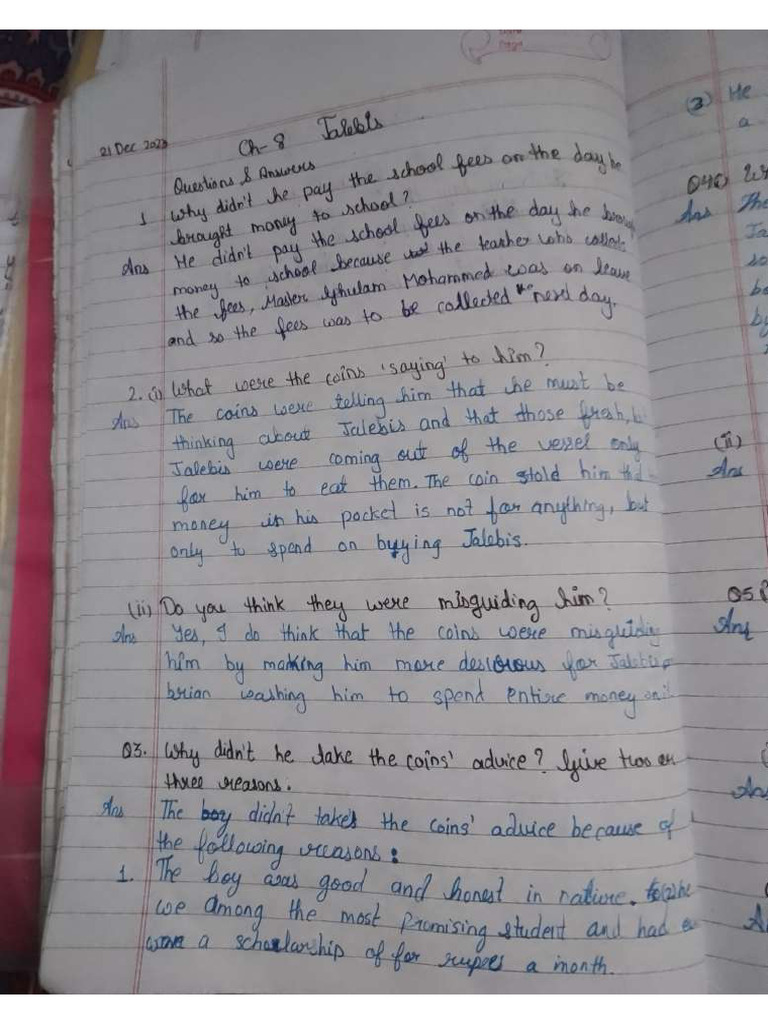 21 Dec 2023
Ch-8 Jalebis
Questions & Answers
1 Why didn't he pay the school fees on the day he
brought money to school?
Ans He didn't pay the school fees on the day he
money to school because the teacher who collects
the fees, Master Ghulam Mohammed was on leave
and so the fees was to be collected the next day.
2. (i) What were the coins 'saying' to him?
Ans The coins were telling him that he must be
thinking about Jalebis and that those fresh,
Jalebis were coming out of the vessel only
for him to eat them. The coin stold him
money in his pocket is not for anything, but
only to spend on buying Jalebis.
(ii) Do you think they were misguiding him?
Ans Yes, I do think that the coins were misguiding
him by making him more desirous for Jalebis,
brian washing him to spend entire money on
Q3. Why didn't he take the coins' advice? Give two or
three reasons.
Ans The boy didn't takes the coins' advice because of
the following reasons:
1. The boy was good and honest in nature. (2) he
we among the most promising student and had
won a scholarship of for rupees a month.
(3) He
a
Q4(i)
Ans The
Ja
so
be
by
(ii)
Ans
Q5
Ans